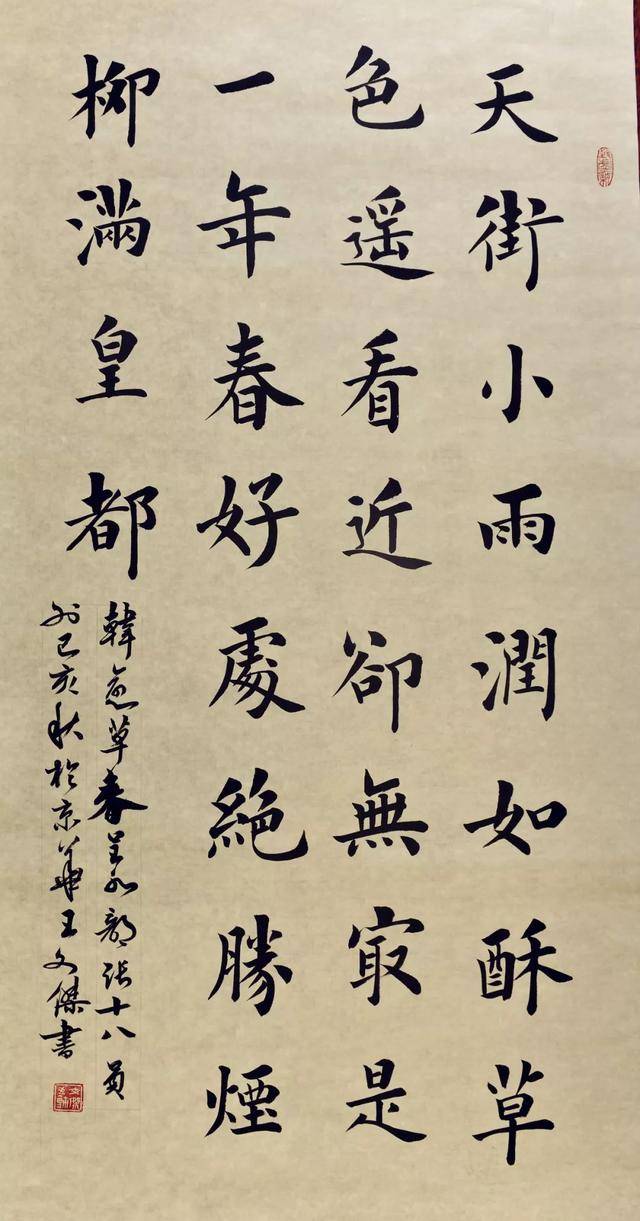 天街小雨潤如酥草
色遥看近卻無㝡是
一年春好處絕勝煙
柳滿皇都
韓愈草春呈水部張十八員
外己亥秋於京華王文傑書